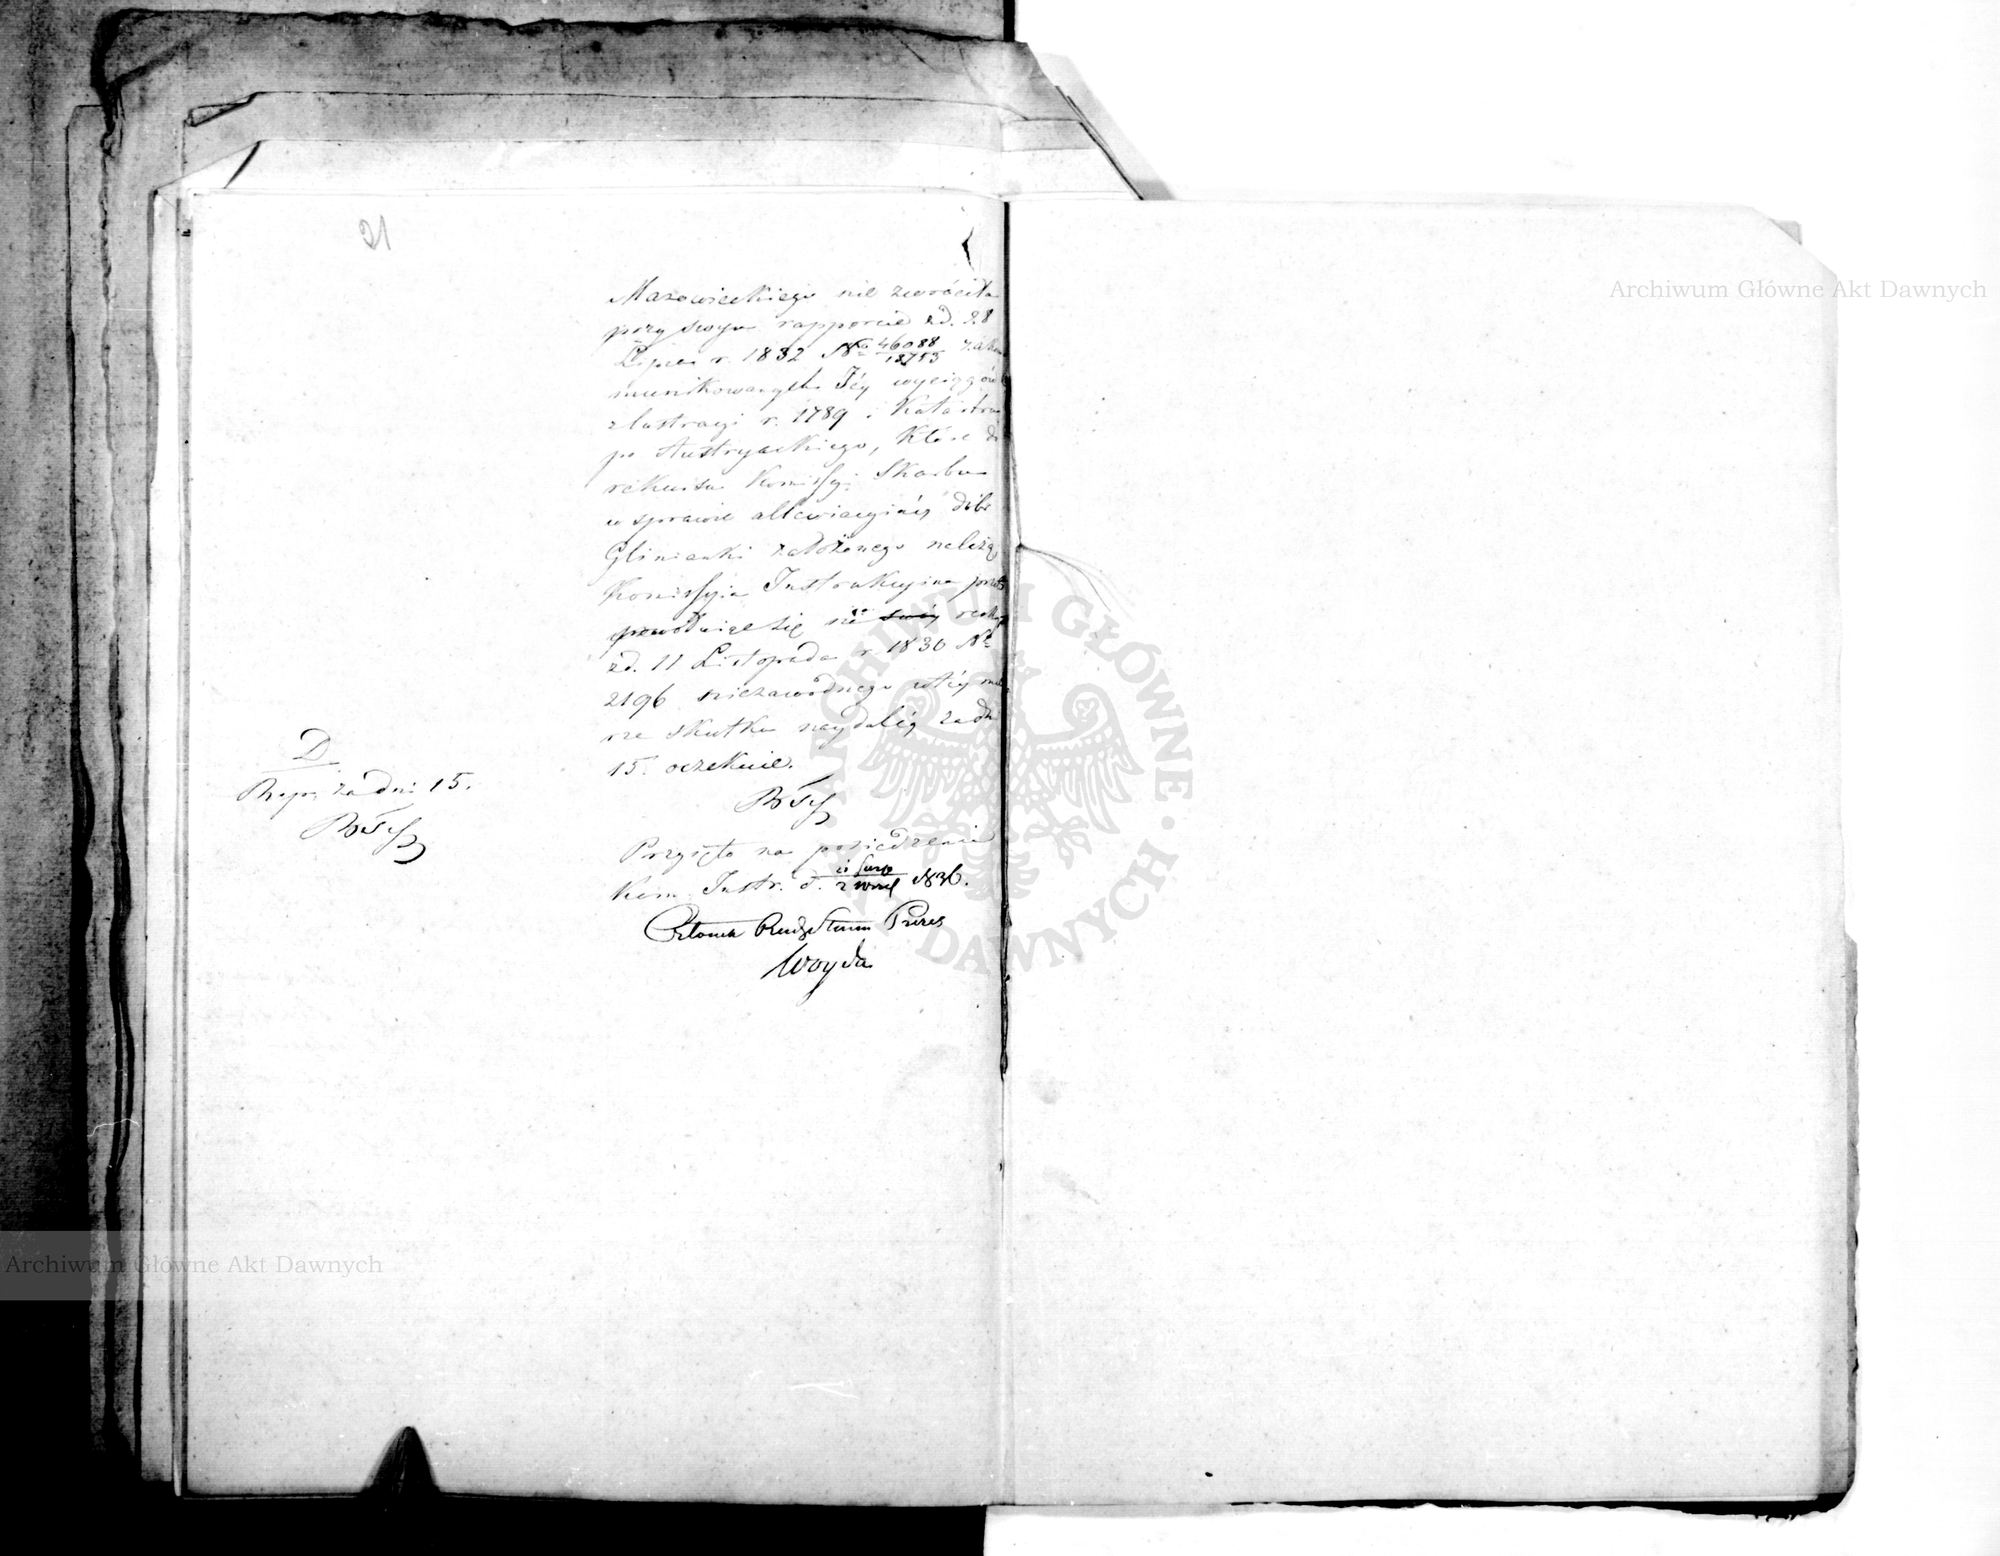 21
Mazowieckiego nie zwróciła
przy swym rapporcie z d. 28
Lipca r. 1832 No 46088/18753 zakom
munikowanych Jéy wyciągów
z lustracyi r. 1789 i Katastru
po Austryackiego, które do
Komissyi Skarbu
w sprawie dóbr
Glinianki założonego należą
Kommissyia Instrukcyina
się
z d. 11 Listopada r. 1830 No
2196 niezawodnego
skutku naydaléy za dni
15. oczekuie.
D
Rep. za dni 15.
Przyięto na posiedzeniu
Kom. Instr. d. 1836.
Członek Prezes
Woyda
Archiwum Główne Akt Dawnych
Archiwum Główne Akt Dawnych
ARCHIWUM GŁÓWNE AKT DAWNYCH